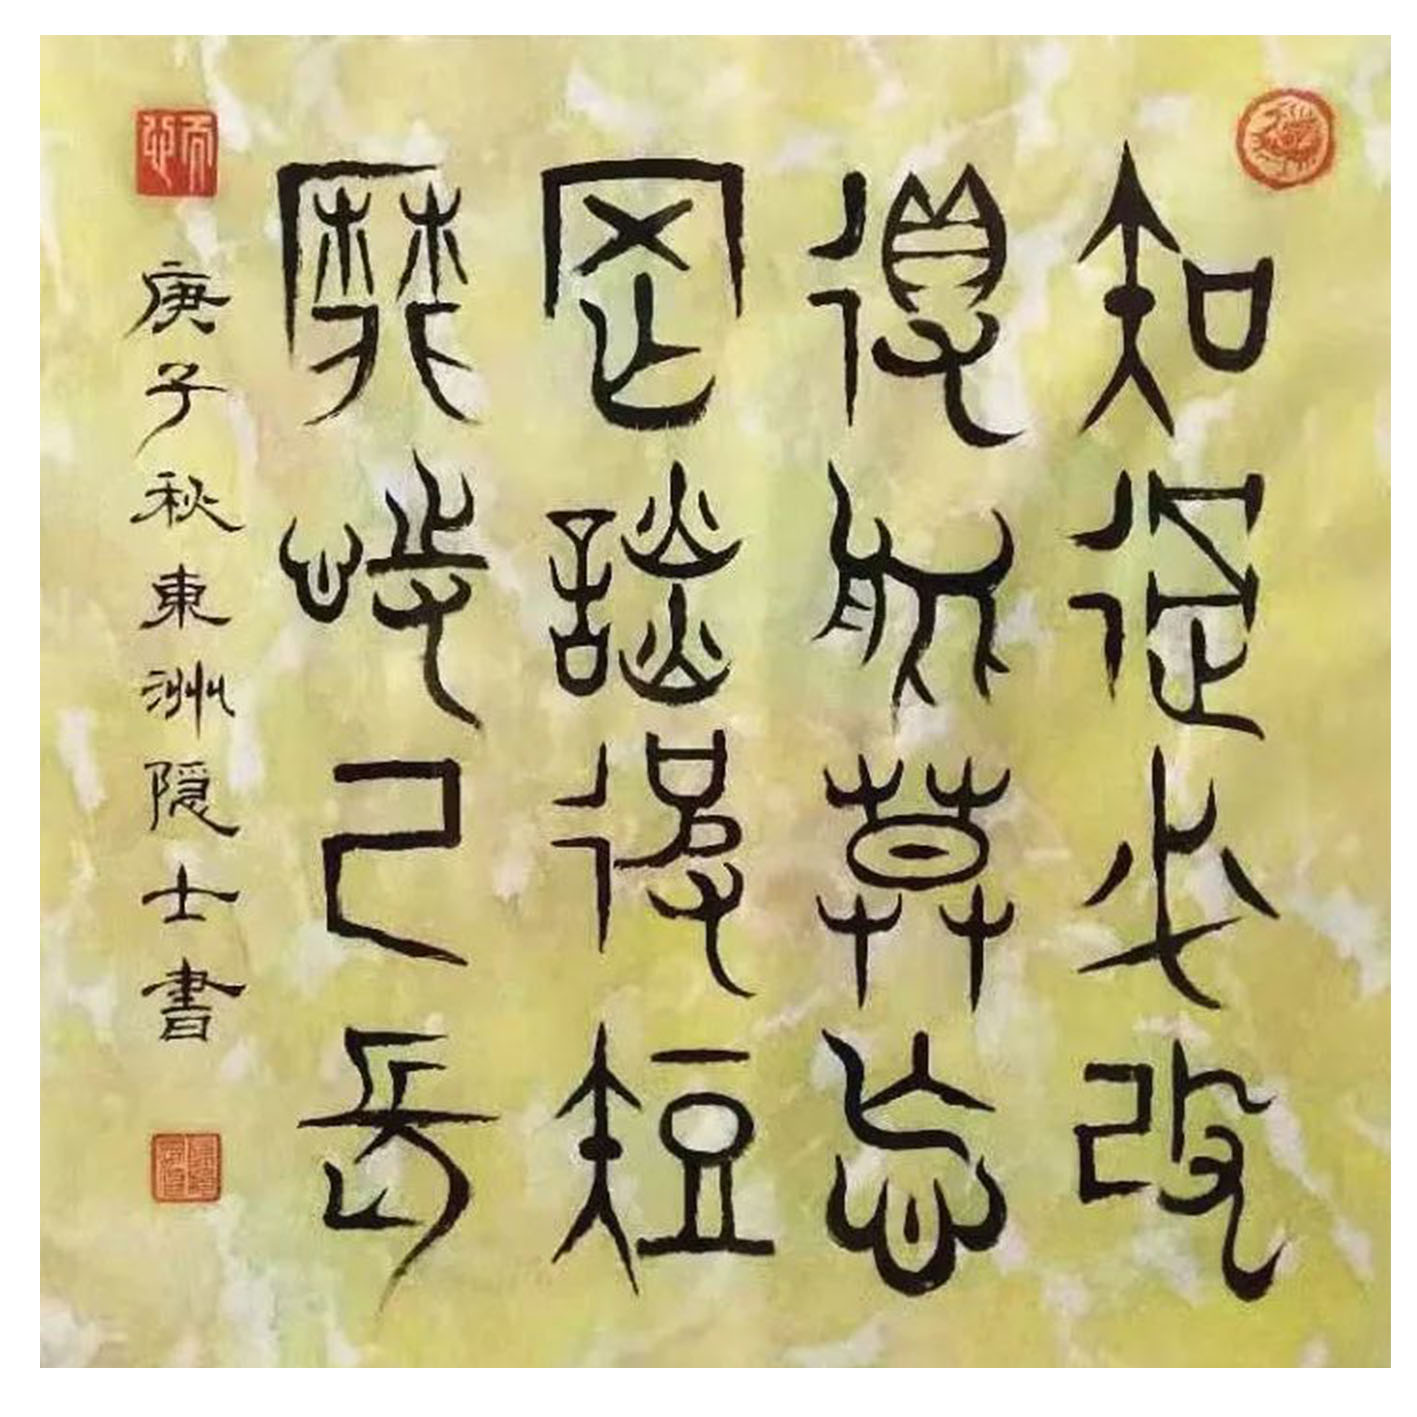 知過必改
得能莫忘
罔談彼短
靡恃己長
庚子秋東洲隐士書